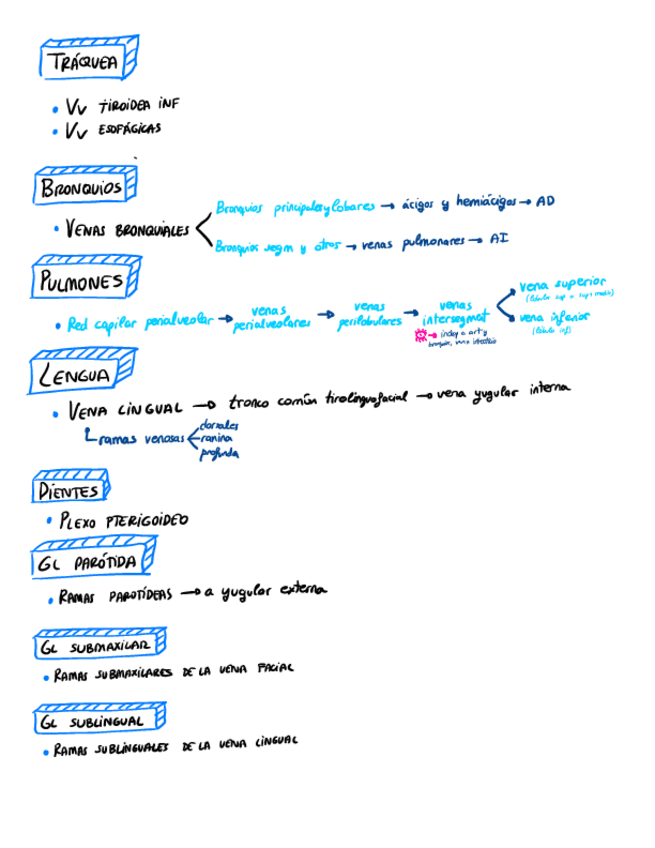 TRÁQUEA
• Vv TIROIDEA INF
• Vv ESOFÁGICAS
BRONQUIOS
Bronquios principales y lobares → ácigos y hemiácigos → AD
• VENAS BRONQUIALES
Bronquios segm y otros → venas pulmonares → AI
PULMONES
vena superior
(lóbulos sup + sup y medio)
• Red capilar perialveolar → venas perialveolares → venas perilobulares → venas intersegmet
vena inferior
(lóbulo inf)
→ indep a art y
bronquios, van x intersticio
LENGUA
• VENA LINGUAL → tronco común tirolinguofacial → vena yugular interna
ramas venosas
dorsales
ranina
profunda
DIENTES
• PLEXO PTERIGOIDEO
GL PARÓTIDA
• RAMAS PAROTÍDEAS → a yugular externa
GL SUBMAXILAR
• RAMAS SUBMAXILARES DE LA VENA FACIAL
GL SUBLINGUAL
• RAMAS SUBLINGUALES DE LA VENA LINGUAL